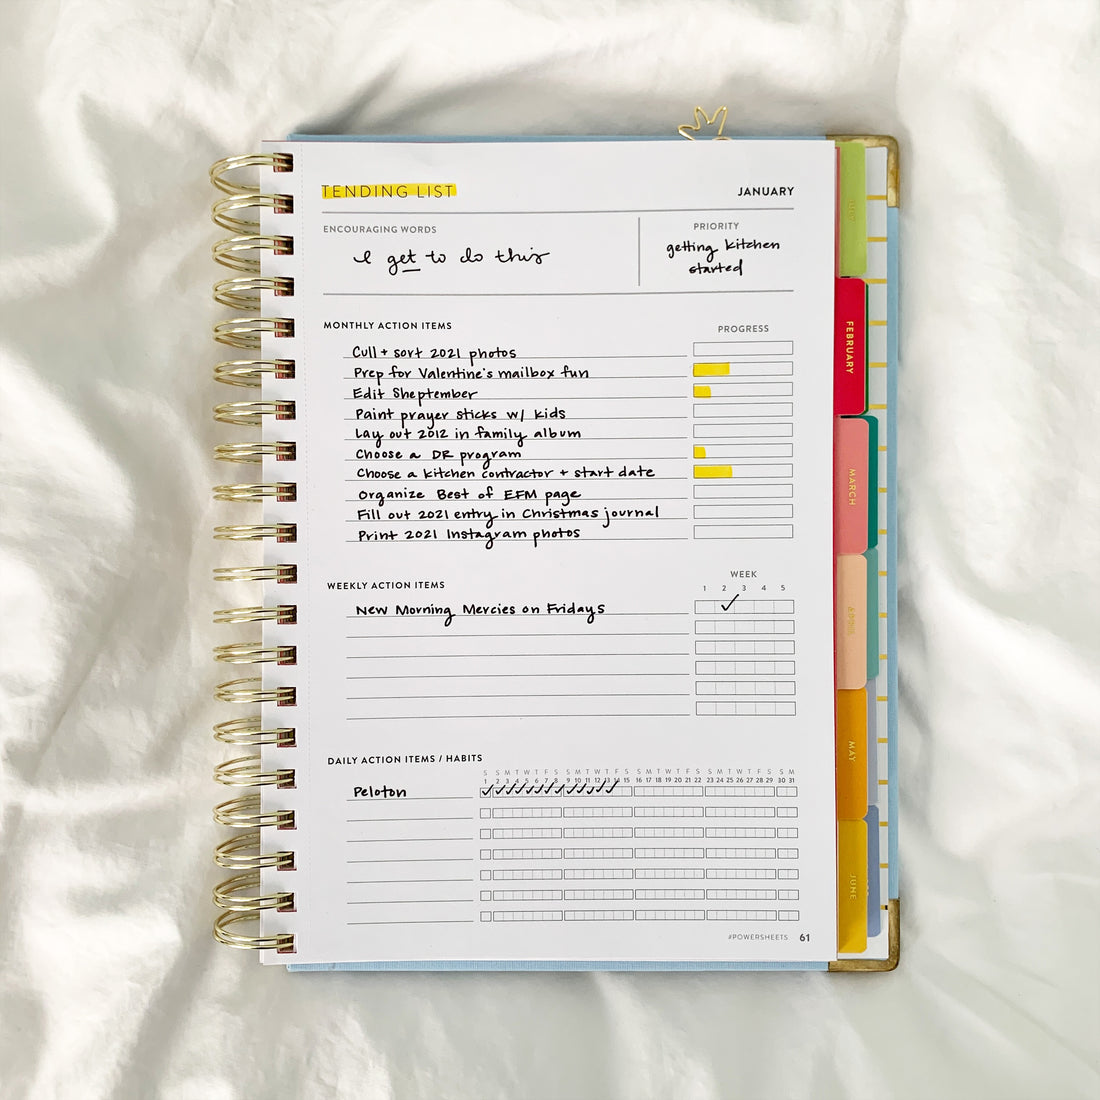 TENDING LIST
JANUARY
ENCOURAGING WORDS
I get to do this
PRIORITY
getting kitchen
started
MONTHLY ACTION ITEMS
PROGRESS
Cull + sort 2021 photos
Prep for Valentine's mailbox fun
Edit Sheptember
Paint prayer sticks w/ kids
Lay out 2012 in family album
Choose a DR program
Choose a kitchen contractor + start date
Organize Best of EFM page
Fill out 2021 entry in Christmas journal
Print 2021 Instagram photos
WEEKLY ACTION ITEMS
WEEK
1 2 3 4 5
New Morning Mercies on Fridays
DAILY ACTION ITEMS / HABITS
S S M T W T F S S M T W T F S S M T W T F S S M T W T F S S M
1 2 3 4 5 6 7 8 9 10 11 12 13 14 15 16 17 18 19 20 21 22 23 24 25 26 27 28 29 30 31
Peloton
#POWERSHEETS 61
FEBRUARY
MARCH
APRIL
MAY
JUNE